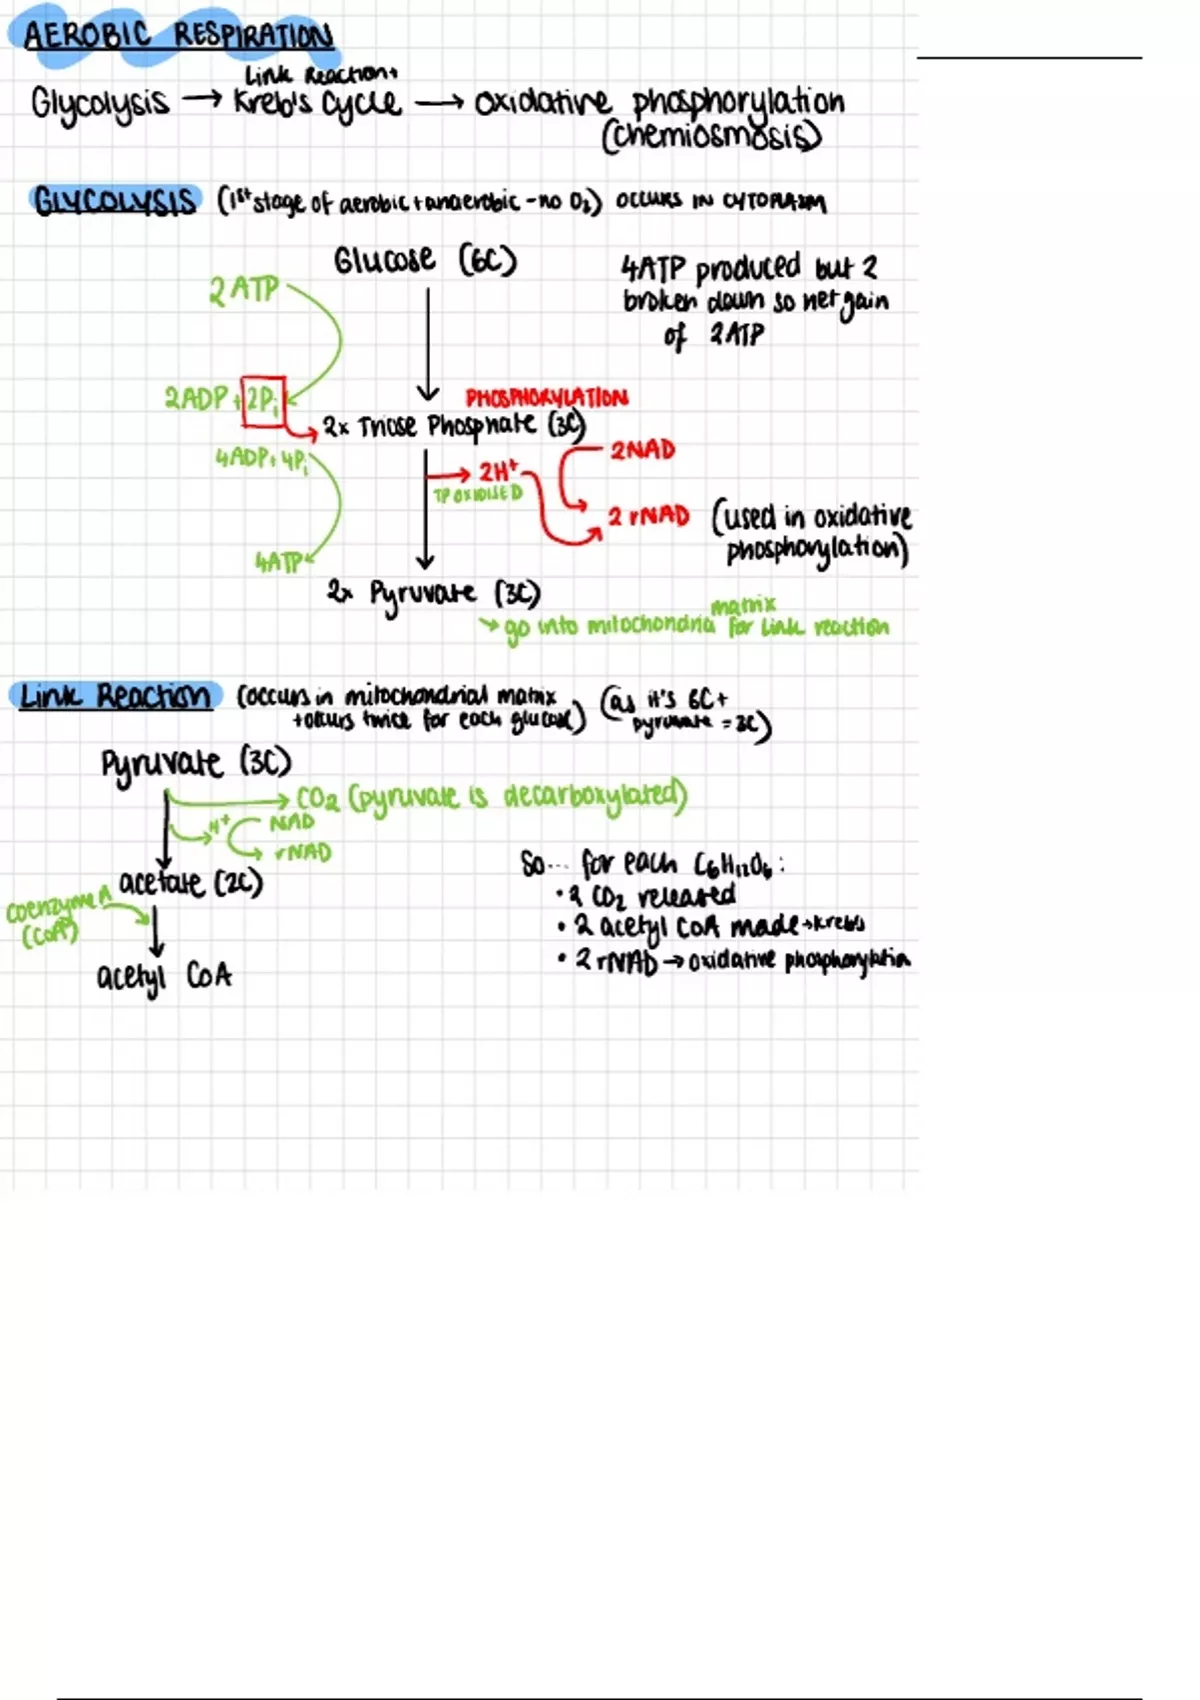 AEROBIC RESPIRATION
Link Reaction+
Glycolysis → Kreb's Cycle → oxidative phosphorylation
(chemiosmosis)
GLYCOLYSIS (1st stage of aerobic + anaerobic - no O2) OCCURS IN CYTOPLASM
Glucose (6C)
2 ATP
4ATP produced but 2
broken down so net gain
of 2ATP
2ADP + 2Pi
PHOSPHORYLATION
2x Triose Phosphate (3C)
4ADP + 4Pi
2H+
2NAD
TP OXIDISED
2 rNAD (used in oxidative
phosphorylation)
4ATP
2x Pyruvate (3C)
matrix
→ go into mitochondria for link reaction
Link Reaction (occurs in mitochondrial matrix
+ occurs twice for each glucose)
(as it's 6C +
pyruvate = 3C)
Pyruvate (3C)
→ CO2 (pyruvate is decarboxylated)
H+ NAD
rNAD
So... for each C6H12O6:
acetate (2C)
• 2 CO2 released
coenzyme A
(CoA)
• 2 acetyl CoA made → krebs
• 2 rNAD → oxidative phosphorylation
acetyl CoA